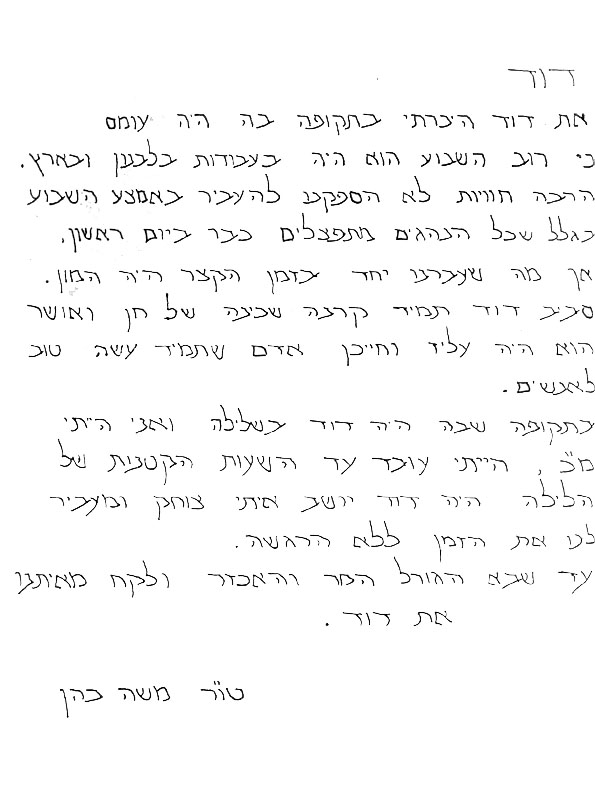 דוד
את דוד היכרתי בתקופה בה היה עומס
כי רוב השבוע הוא היה בעבודות בלבנון ובארץ.
הרבה חוויות לא הספקנו להעביר באמצע השבוע
בגלל שכל הנהגים מתפצלים כבר ביום ראשון.
אך מה שעברנו יחד בזמן הקצר היה המון.
סביב דוד תמיד קרנה שכינה של חן ואושר
הוא היה עליז וחייכן אדם שתמיד עשה טוב
לאנשים.
בתקופה שבה היה דוד בשלילה ואני הייתי
מ"כ, הייתי עובד עד השעות הקטנות של
הלילה היה דוד יושב איתי צוחק ומעביר
לנו את הזמן ללא הרגשה.
עד שבא הגורל המר והאכזר ולקח מאיתנו
את דוד.
טו"ר משה כהן